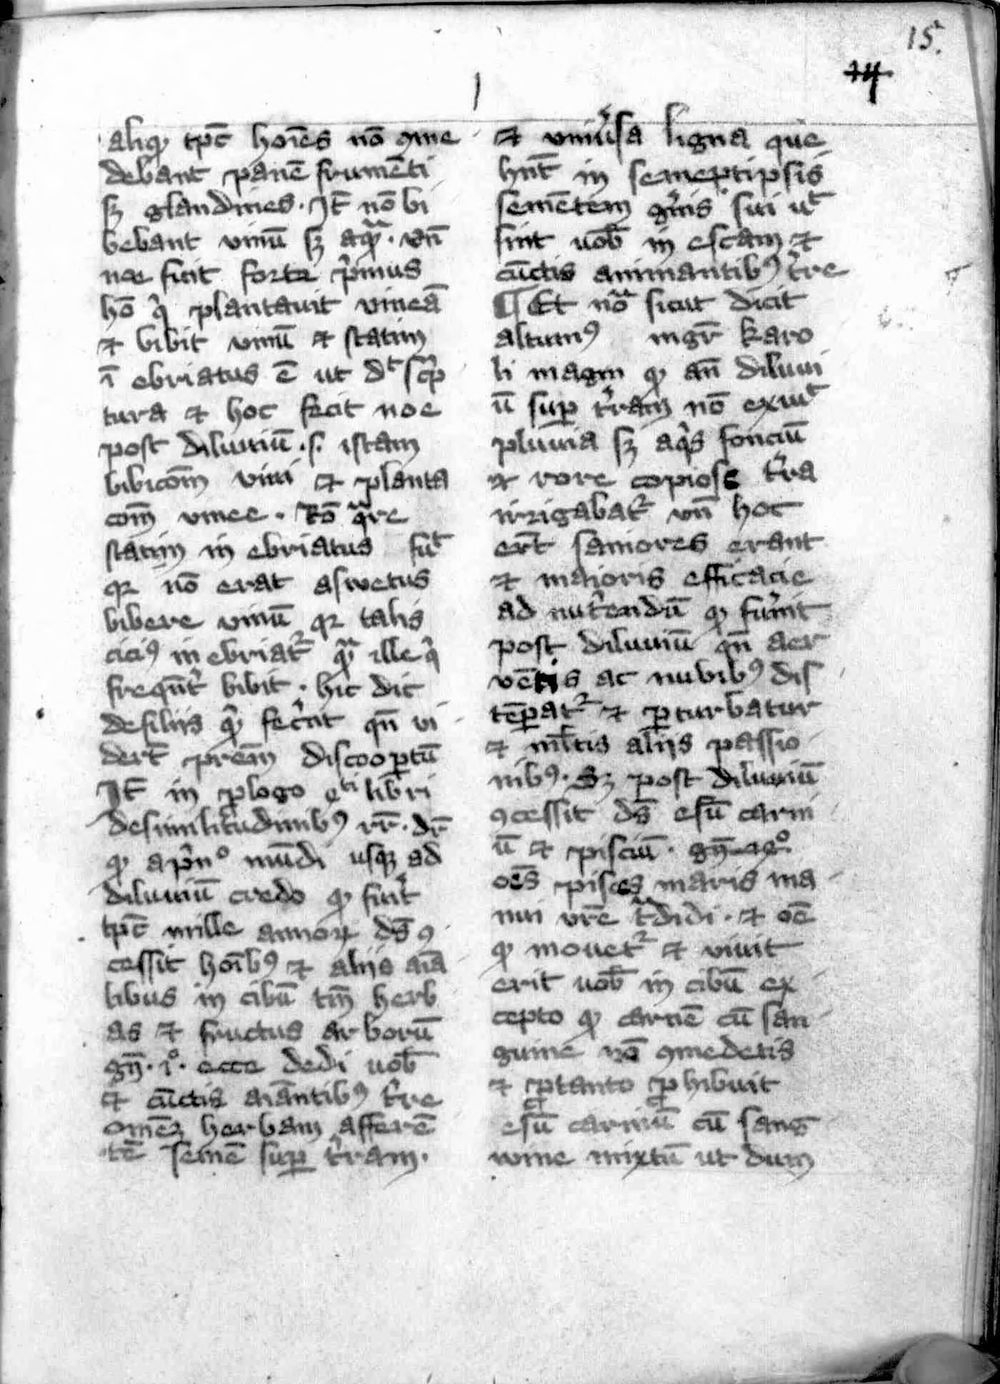 15.
14
aliqͦ tp̄c hoīes nō ꝯme
debant panē frumēti
sꝫ glandines. It̄ nō bi
bebant vinū sꝫ aquā. vn̄
noe fuit forte p̓mus
hō qͥ plantavit vineā
et bibit vinū et statim
ī ebriatus ē ut dt̄ sc̓p
tura et hoc fecit noe
post diluviū .s. istam
bibicōm vini et planta
cōm vinee. Rō qᵃre
statim in ebriatus fuᵗ
qꝛ nō erat aswetus
bibere vinū qꝛ talis
ciciꝰ in ebriatᷣ qᵃ ille qͥ
freqn̄t̓ bibit. hic dic
de filiis qͥ fec̓nt qn̄ vi
dert̄ pr̄em discoop̱tū
It̄ in ꝓlogo eᵗⁱ libri
de similitudinibꝰ rr̄. dr̄
qͦ a pn̓ͦ mūdi usqꝫ ad
diluuiū credo qͦ fuit
tp̄c mille annorꝝ ds̄ ꝯ
cessit hoībꝰ et aliis aīa
libus in cibū tm̄ herb
as et fructus arborū
gn̄. iͦ. ecce dedi vob̄
et cūctis aīantibꝰ t̓re
omnēꝫ herbam afferē
tē semē sup t̓ram.
et vniu̓sa ligna que
hn̄t in semeptipsis
semētem gn̓is sui ut
sint vob̄ in escam et
cūctis animantibꝰ t̓re
¶ Et nōᵃ sicut dicit
altuinꝰ mgr̄ karo
li magni qͦ an̄ diluui
ū sup t̓ram nō exiuᵗ
pluuia sꝫ aqͥs fonciū
et rore copiose t̓ra
irrigabatᷣ vn̄ hoc
ert̄ saniores erant
et maioris efficacie
ad nut̓endū qͦ fu̓int
post diluuiū qn̄ aer
vētis ac nubibꝰ dis
tēꝑatᷣ et ꝑturbatur
et ml̄tis aliis passio
nibꝰ. Sꝫ post diluuiū
ꝯcessit ds̄ esū carni
ū et pisciū. gn̄ 9ͦ
oēs pisces maris ma
nui vr̄e tᵃdidi. et oē
qͦ mouetᷣ et viuit
erit vob̄ in cibū ex
cepto qͦ carnē cū san
guine nō ꝯmedetis
et ꝓtanto ꝓhibuit
esū carniū cū sang
wine mixtū ut dum